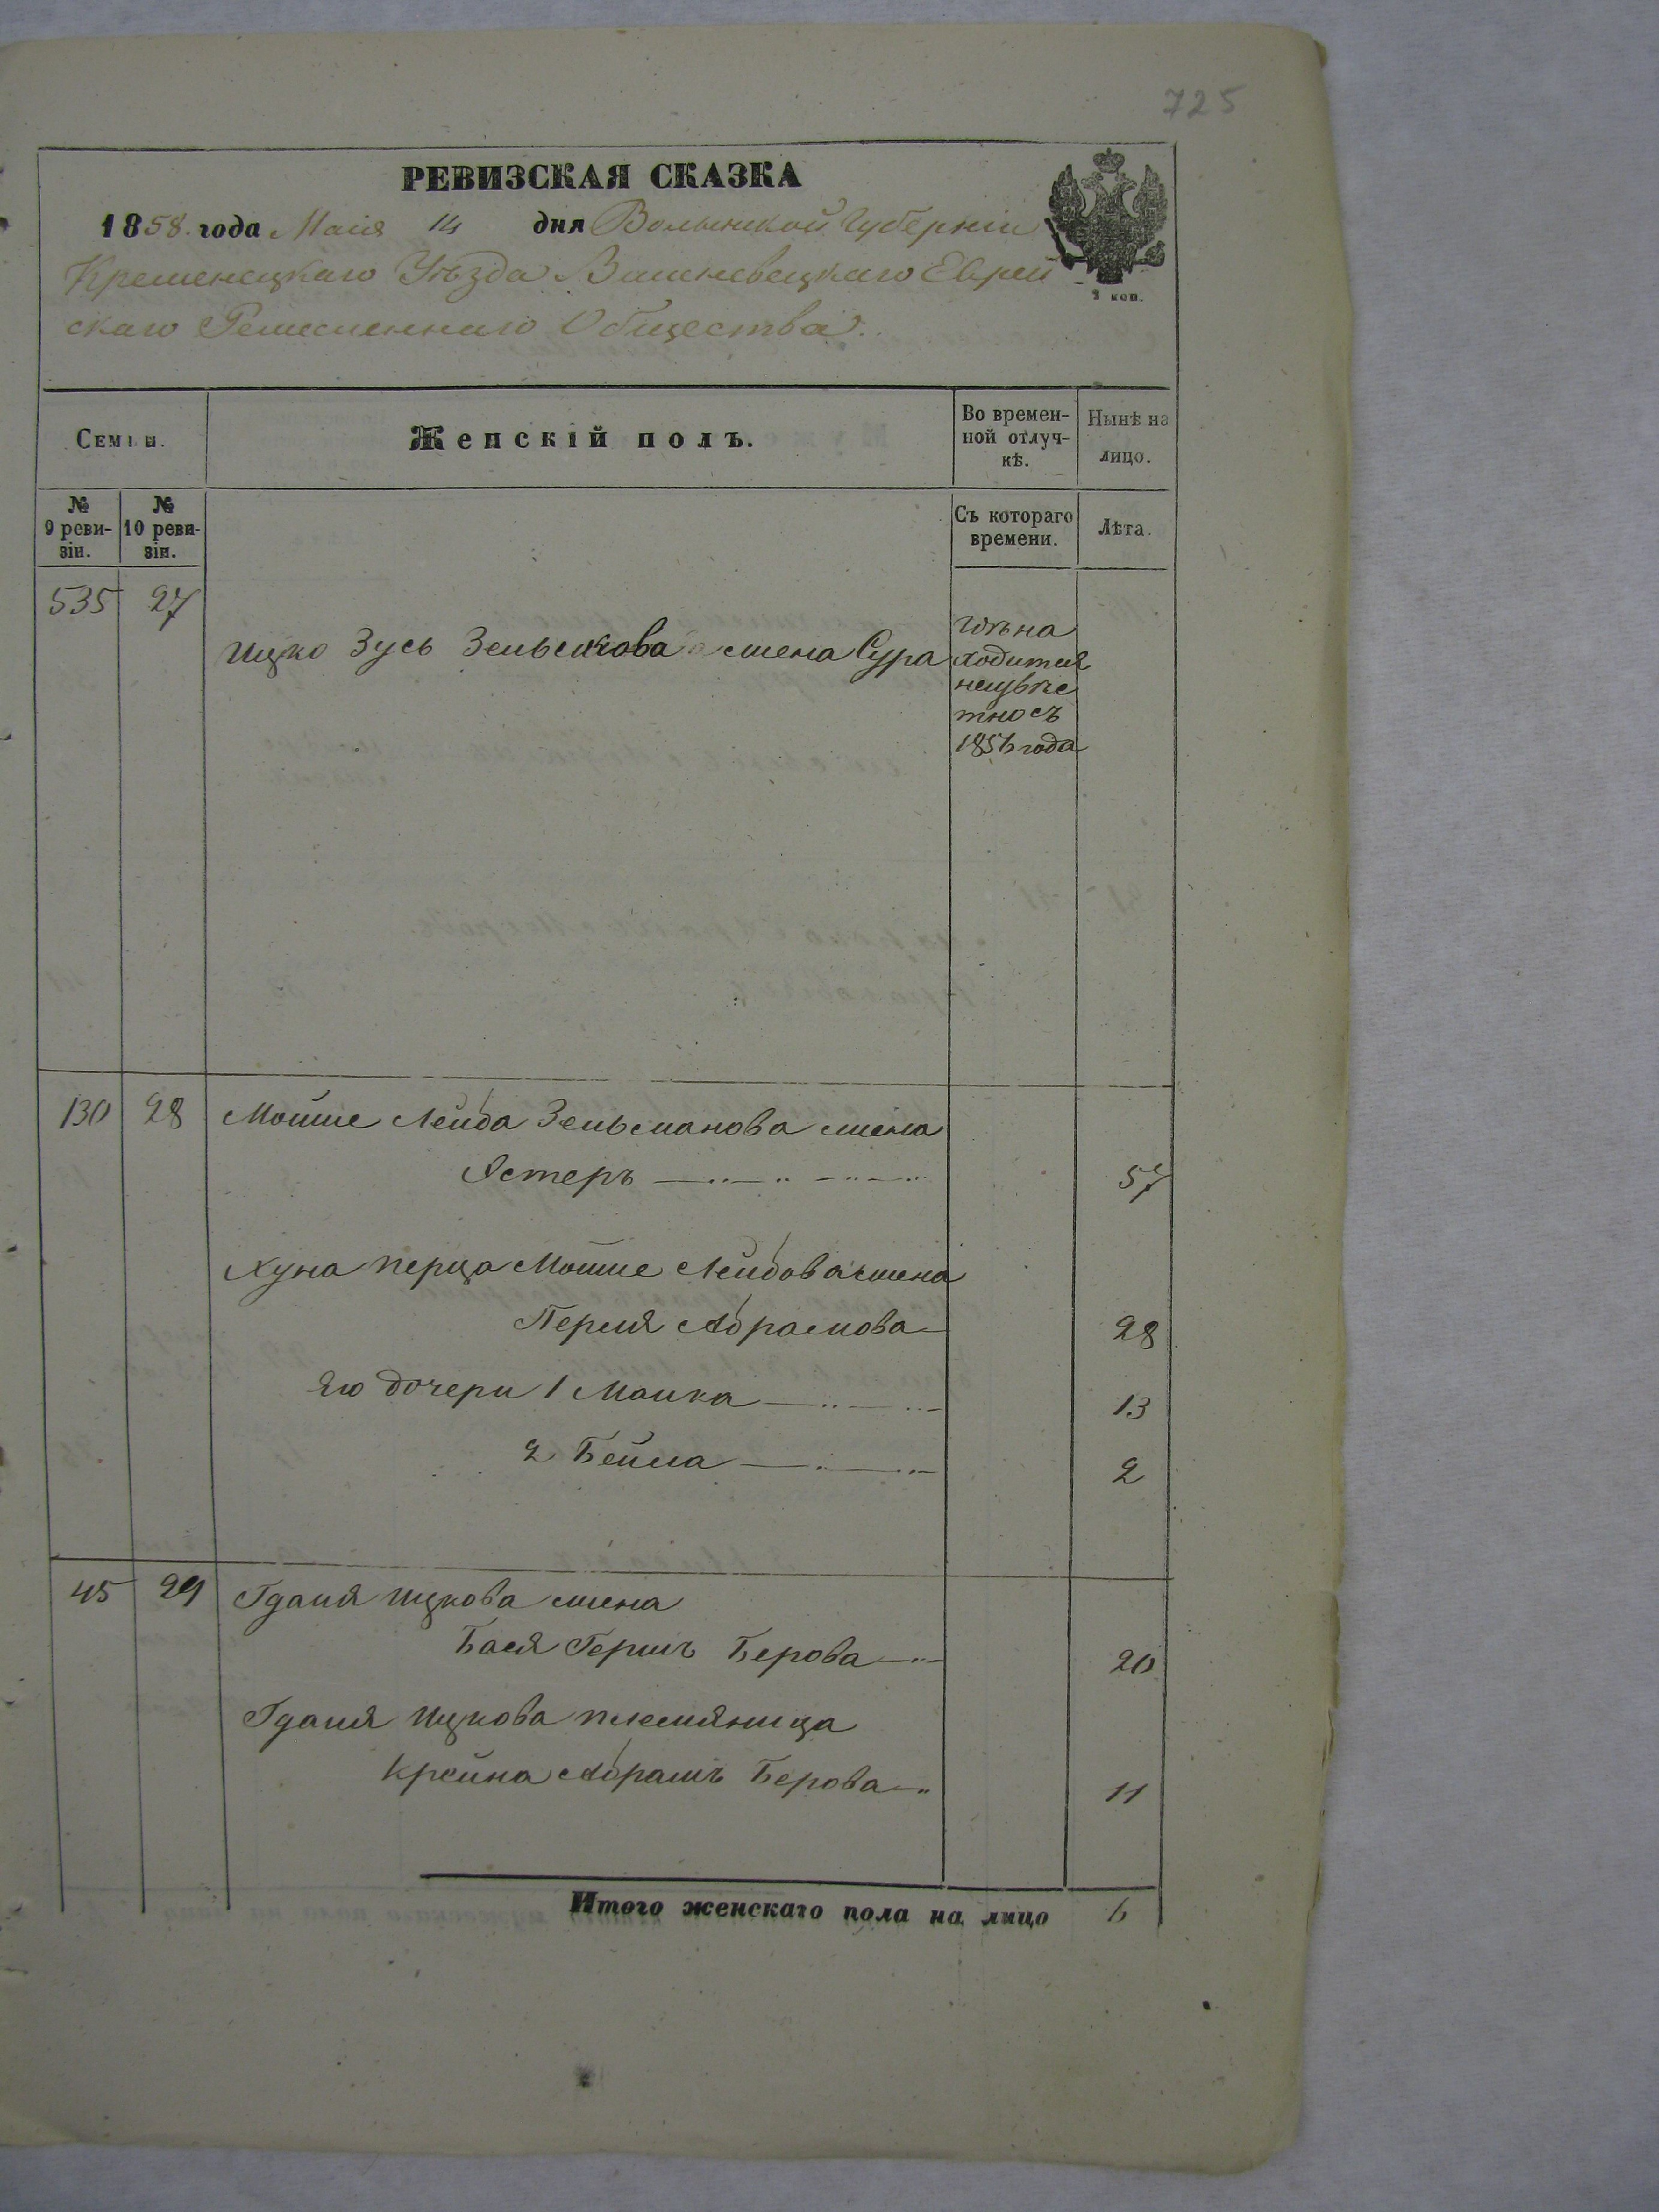 725
РЕВИЗСКАЯ СКАЗКА
1858 года Маія 14 дня Волынской Губерніи
Кременецкаго Уѣзда Вишневецкаго Еврей
скаго Ремесленнаго Общества.
2 коп.
Семьи. Женскій полъ. Во времен-ной отлуч-кѣ. Нынѣ на лицо.
№ 9 реви-зіи. № 10 реви-зіи. Съ котораго времени. Лѣта.
535 27
Ицко Зусь Зельманова жена Сура
гдѣ на
ходится
неизвѣс
тно съ
1856 года
130 28 Мошие Лейба Зельманова жена
Эстеръ 57
Хуна Перца Мошие Лейбова жена
Перля Абрамова 28
Его дочери 1 Малка 13
2 Бейла 2
45 29 Гдаля Ицкова жена
Бася Гершъ Берова 20
Гдаля Ицкова племяница
Крейна Абрамъ Берова 11
Итого женскаго пола на лицо 6